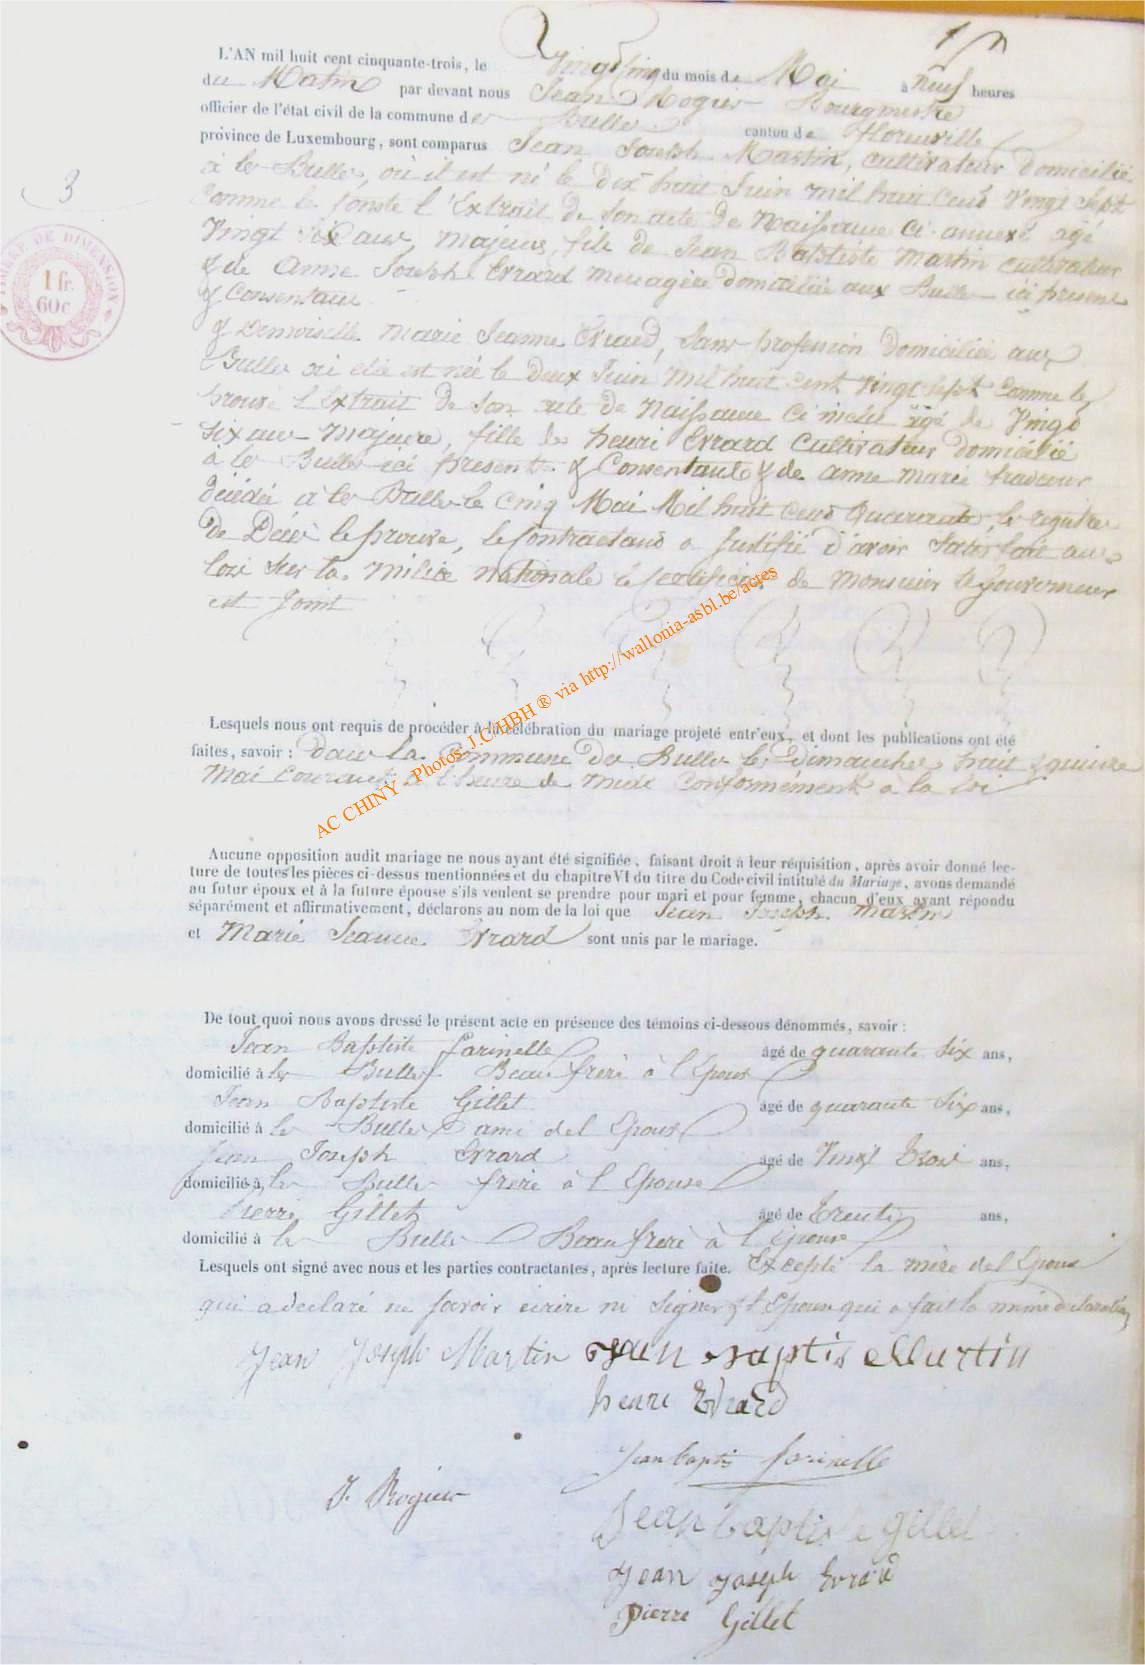 L'AN mil huit cent cinquante-trois, le Vingt Cinq du mois de Mai à neuf heures
du Matin par devant nous Jean Rogier Bourgmestre
officier de l'état civil de la commune des Bulles canton de Florenville
province de Luxembourg, sont comparus Jean Joseph Martin, cultivateur domicilié
à les Bulles, où il est né le dix huit Juin mil huit cent Vingt Sept
comme le conste l'Extrait de son acte de Naissance ci-annexé agé
Vingt six ans, majeur, fils de Jean Baptiste Martin cultivateur
& de Anne Joseph Evrard menagère domiciliée aux Bulles ici present
& Consentant
3
TIMBRE DE DIMENSION
1 fr. 60 c.
& Demoiselle Marie Jeanne Evrard, sans profession domiciliée aux
Bulles où elle est née le deux Juin mil huit cent vingt sept comme le
prouve l'Extrait de son acte de Naissance ci inclu agé de Vingt
six ans majeure, fille de henri Evrard cultivateur domicilié
à les Bulles ici present & Consentant & de anne marie
décédée à les Bulles le cinq Mai Mil huit cent Quarante, le registre
de Décès le prouve, le contractant a justifié d'avoir satisfait aux
loix sur la milice nationale le certificat de Monsieur le Gouverneur
est joint
Lesquels nous ont requis de procéder à la célébration du mariage projeté entr'eux, et dont les publications ont été
faites, savoir : dans la Commune des Bulles les Dimanches huit & quinze
Mai Courant à l'heure de midi conformément à la loi
AC CHINY - Photos J.C.HBH ® via http://wallonia-asbl.be/actes
Aucune opposition audit mariage ne nous ayant été signifiée, faisant droit à leur réquisition, après avoir donné lec-
ture de toutes les pièces ci-dessus mentionnées et du chapitre VI du titre du Code civil intitulé du Mariage, avons demandé
au futur époux et à la future épouse s'ils veulent se prendre pour mari et pour femme, chacun d'eux ayant répondu
séparément et affirmativement, déclarons au nom de la loi que Jean Joseph Martin
et Marie Jeanne Evrard sont unis par le mariage.
De tout quoi nous avons dressé le présent acte en présence des témoins ci-dessous dénommés, savoir :
Jean Baptiste Farinelle âgé de quarante six ans,
domicilié à les Bulles Beau frère à l'Epoux
Jean Baptiste Gillet âgé de quarante six ans,
domicilié à les Bulles ami del Epoux
Jean Joseph Evrard âgé de Vingt trois ans,
domicilié à les Bulles frère à l'Epouse
Pierre Gillet âgé de trente ans,
domicilié à les Bulles Beau frère à l'épouse
Lesquels ont signé avec nous et les parties contractantes, après lecture faite. Excepté la mère del Epoux
qui a declaré ne savoir écrire ni signer & l'Epouse qui a fait la même declaration
Jean Joseph Martin Jean Baptis Martin
henri Evrard
Jean baptis farinelle
J. Rogier
Jean baptiste gillet
Jean Joseph Evrard
Pierre Gillet